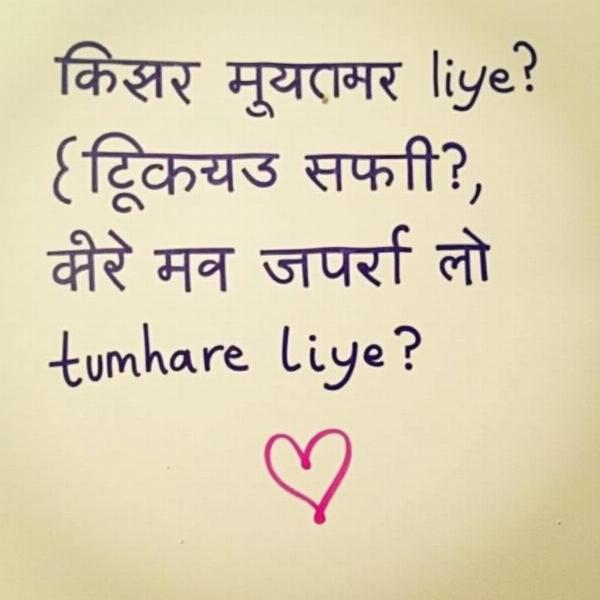 किझर मूयतमर liye?
{टूिकयउ सफाी?,
मव जपर्रा लो
tumhare liye?